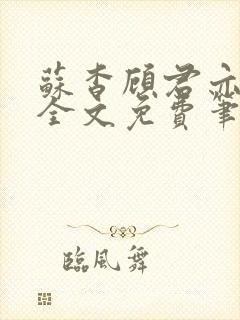 蘇杳顧君亦
全文免費筆
臨風舞